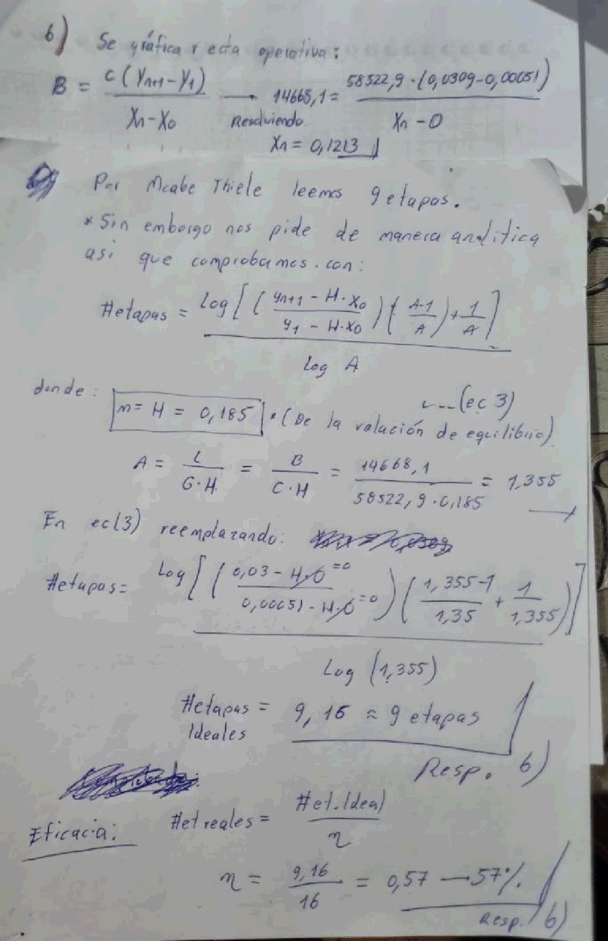 6) Se gráfica recta operativa:
B = C(Yn+1 - Y1) / Xn - X0 → Resolviendo 14668,1 = 58522,9 · (0,0309 - 0,00051) / Xn - 0
Xn = 0,1213
Por Mcabe Thiele leemos 9 etapas.
* Sin embargo nos pide de manera analítica
asi que comprobamos con:
#etapas = Log[((yn+1 - H·X0) / (y1 - H·X0)) (A-1 / A) + 1/A] / Log A
---(ec 3)
donde: m = H = 0,185 * (De la relación de equilibrio)
A = L / G·H = B / C·H = 14668,1 / 58522,9·0,185 = 1,355
En ec(3) reemplazando:
#etapas = Log[((0,03 - H·0 =0) / (0,00051 - H·0 =0)) (1,355-1 / 1,35 + 1 / 1,355)] / Log (1,355)
#etapas Ideales = 9,16 ≈ 9 etapas
Resp. 6)
Eficacia: #et reales = #et. Ideal / η
η = 9,16 / 16 = 0,57 → 57%
Resp. 6)